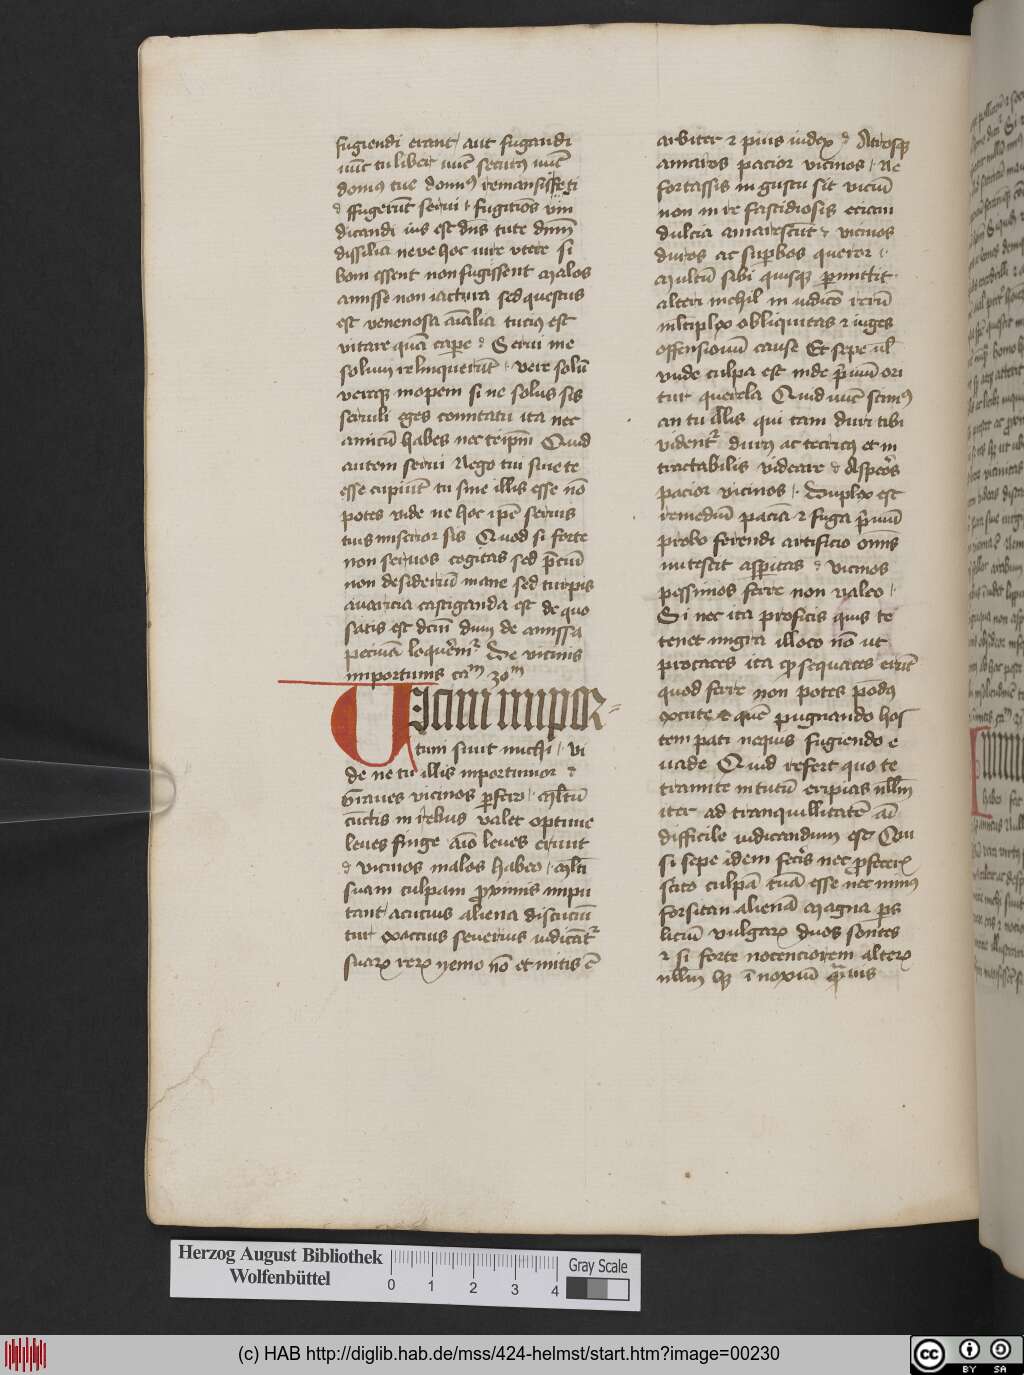 fugiendi erant / aut fugandi
nūc tu liber nūc securꝯ nūc
domꝯ tue dominꝯ remansisse
⁊ ffugerūt serui / fugitiōs vin
dicandi ius est dn̄s tute dnīm
dissilia neve hoc iure vtere si
boni essent non fugissent Malos
amisse non iactura sed questus
est venenosa aīalia tuciꝯ est
vitare quā capere ⁊ Serui me
solum relinquerūt / vere solū
verūq inopem si ne solus sis
seruili eges comitatu ita nec
amicū habes nec teipm̄ Quid
autem serui Nego tui sine te
esse cupiūt tu sine illis esse nō
potes vide ne hoc ip̄e seruus
tuis miserior sis Quod si forte
non seruos cogitas sed p̄ciū
non desideriū mane sed turpis
auaricia castiganda est de quo
satis est dcm̄ dum de amissa
pecunia loquerem̄ De vicinis
importunis caᵐ 30ᵐ
Vicini inpor=
tuni sunt michi / vi
de ne tu illis inportunior ⁊
Graues vicinos perfero / Mltū
cūctis in rebus valet optimꝭ
leues finge aīo leues erunt
⁊ vicinos malos habeo / Mlti
suam culpam proximis impu
tant / acucius aliena discuciū
tur exactius seuerius iudicāt
suarꝝ rerꝝ nemo nō et mitis ē
arbiter ⁊ pius iudex ⁊ Atrosqꝫ
amaros pacior vicinos / Ne
fortassis in gustu sit viciū
non in re fastidiosis eciam
dulcia amarescūt ⁊ vicinos
duros ac supbos queror /
Multū sibi quisqꝫ pmittit
alteri nichil in iudicō rerū
mltiplex obliquitas ⁊ iuges
offensionū cause Et sepe ul̄
vnde culpa est inde p̄mū ori
tur querela Quid nūc scimꝰ
an tu illis qui tam duri tibi
vident̄ durꝯ ac tetricꝯ et in
tractabilis videare ⁊ Asperos
pacior vicinos / Duplex est
remediū paciā ⁊ fuga p̄mū
probo ferendi artificio om̄s
mitescit aspitas ⁊ Vicinos
pessimos ferre non valeo /
Si nec ita proficis quis te
tenet migra illoco nō ut
procaces ita qꝫ sequaces erūt
quod ferre non potes pondꝯ
excute ⁊ quē pugnando hos
tem pati nequis fugiendo e
uade Quid refert quo te
tramite in tutū eripias nllm̄
iter ad tranquillitatē aī
difficile iudicandum est Qui
si sepe idem feceris nec profeceris
scito culpā tuā esse nec minꝯ
forsitan alienā Magna ps
licium vulgarꝝ duos sontes
⁊ si forte nocenciorem alterꝝ
nllm̄ hꝫ īnoxiū quāvis
Herzog August Bibliothek
Wolfenbüttel
0 1 2 3 4
Gray Scale
(c) HAB http://diglib.hab.de/mss/424-helmst/start.htm?image=00230
cc BY SA